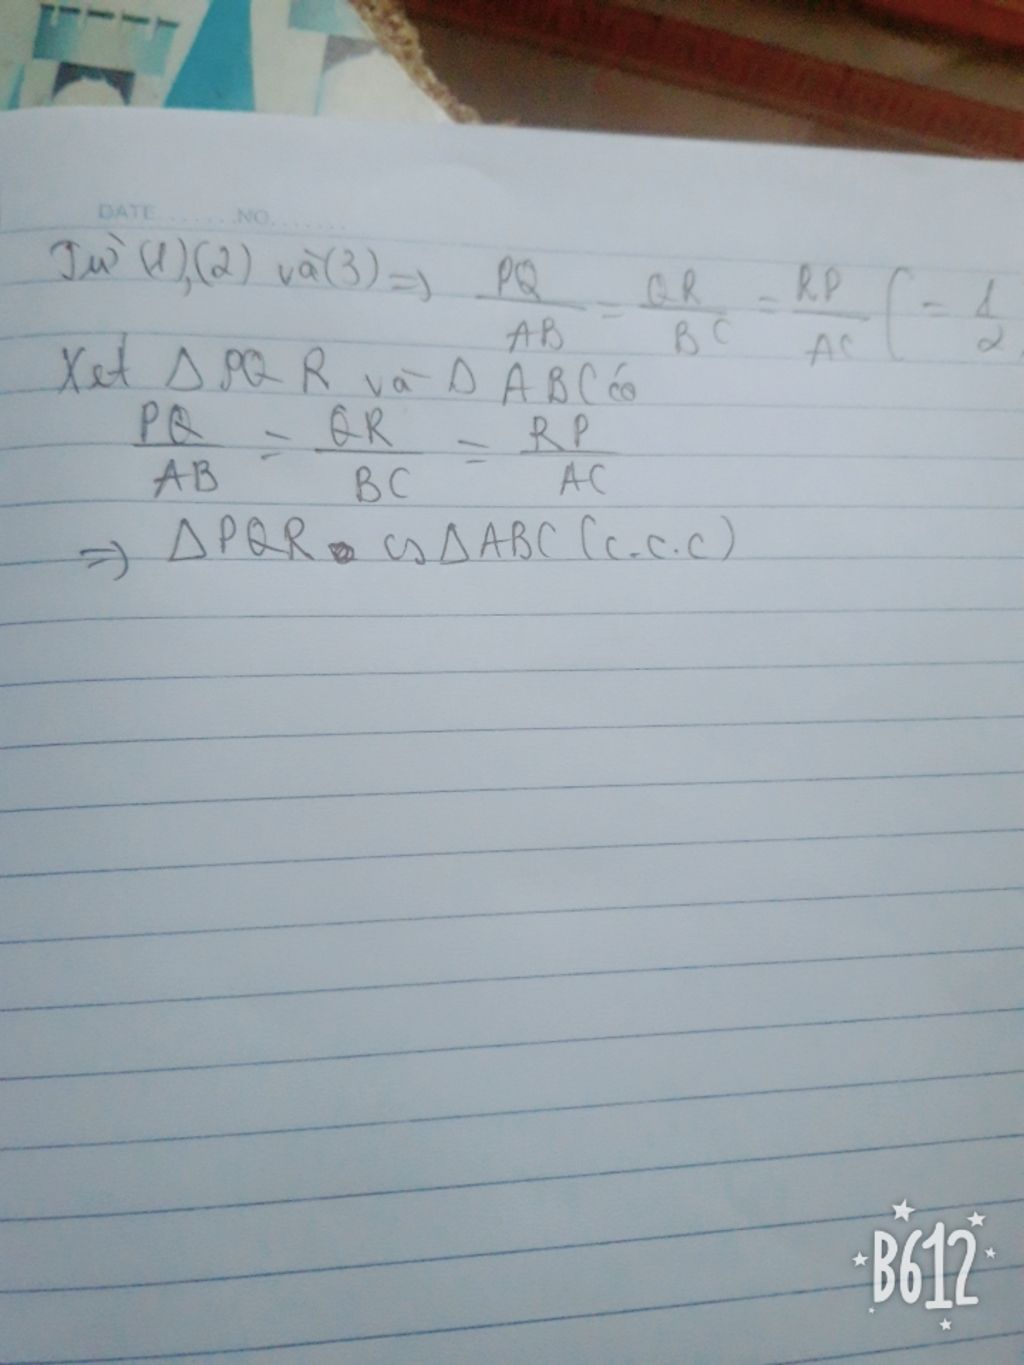 DATE.......NO.......
Từ (1),(2) và (3) => PQ/AB = QR/BC = RP/AC ( = 1/2
Xet Δ PQR và Δ ABC có
PQ/AB = QR/BC = RP/AC
=> ΔPQR ᔕ ΔABC (c.c.c)
B612